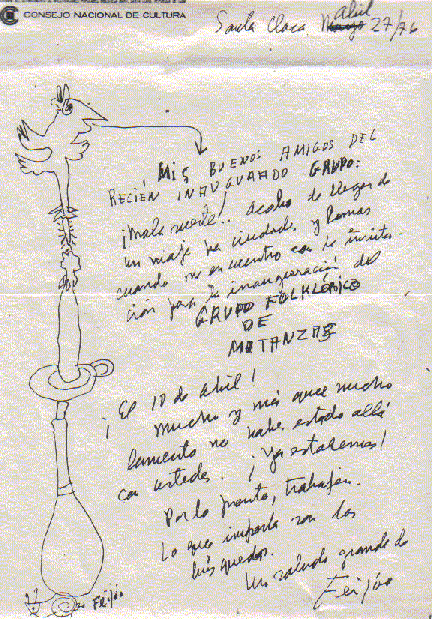 CONSEJO NACIONAL DE CULTURA
Santa Clara Mayo abril 27/76
MIS BUENOS AMIGOS DEL
RECIÉN INAUGURADO GRUPO:
¡Mala suerte! Acabo de llegar de
un viaje ciudades y lomas
cuando me encuentro con la invita-
ción para la inauguración del
GRUPO FOLKLORICO
DE
MATANZAS
¡El 10 de abril!
Mucho y más que mucho
lamento no haber estado allá
con ustedes. ¡Ya estaremos!
Por lo pronto, trabajen.
Lo que importa son las
búsquedas.
Un saludo grande de
Feijóo
Feijóo